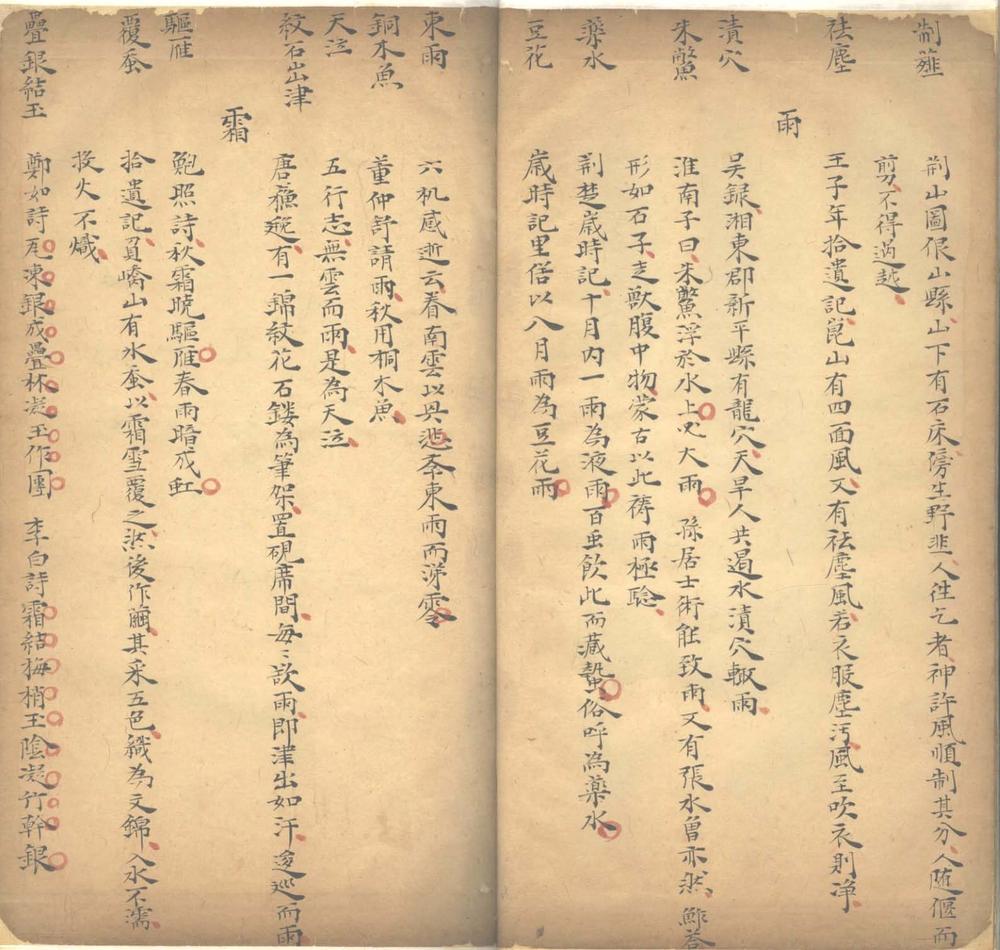 制薤　荆山圖佷山縣山下有石床傍生野韭人徃乞者神許風順制其分人随偃而
剪不得過越
祛塵　王子年拾遺記崑山有四面風又有祛塵風若衣服塵污風至吹衣則净
雨
漬穴　吴錄湘東郡新平縣有龍穴天旱人共遏水漬穴輙雨
朱鱉　淮南子曰朱鱉浮於水上必大雨　孫居士術能致雨又有張水曾亦然　鮓荅
形如石子走獸腹中物蒙古以此禱雨極騐
藥水　荆楚歲時記十月内一雨為液雨百虫飲此而藏蟄俗呼為藥水
豆花　歲時記里俗以八月雨為豆花雨
東雨　六机感逝云眷南雲以興悲奉東雨而涕零
銅木魚　董仲舒請雨秋用桐木魚
天泣　五行志無雲而雨是為天泣
紋石出津　唐有一錦紋花石鏤為筆架置硯席間每〻欲雨即津出如汗逡巡而雨
霜
驅雁　鮑照詩秋霜曉驅雁春雨暗成虹
覆蚕　拾遺記員嶠山有水蚕以霜雪覆之然後作繭其采五色織為文錦入水不濡
投火不熾
疊銀結玉　鄭如詩瓦凍銀成疊林凝玉作團　李白詩霜結梅梢玉陰凝竹幹銀